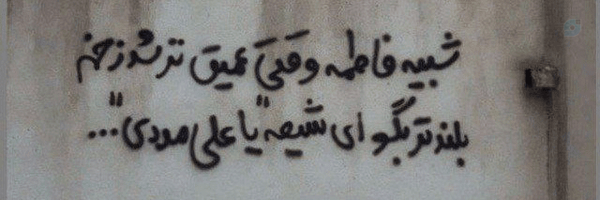 شبیه فاطمه وقتی عمیق تر شد زخم
بلندتر بگو ای شیعه "یا علی مددی"...